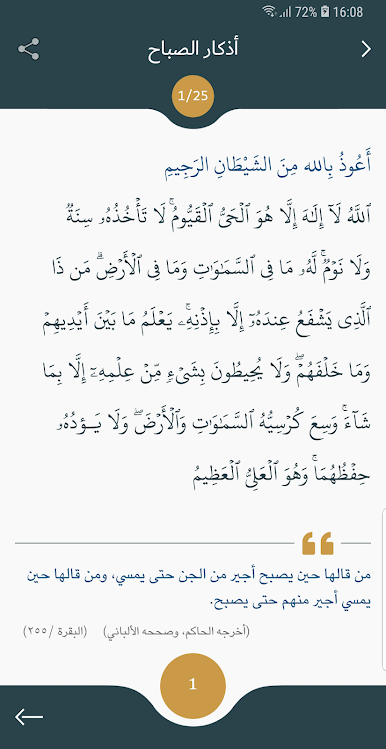 72% 16:08
أذكار الصباح
1/25
أَعُوذُ بِالله مِنَ الشَّيْطَانِ الرَجِيمِ
ٱللَّهُ لَآ إِلَـٰهَ إِلَّا هُوَ ٱلْحَىُّ ٱلْقَيُّومُ ۚ لَا تَأْخُذُهُۥ سِنَةٌ
وَلَا نَوْمٌ ۚ لَّهُۥ مَا فِى ٱلسَّمَـٰوَٰتِ وَمَا فِى ٱلْأَرْضِ ۗ مَن ذَا
ٱلَّذِى يَشْفَعُ عِندَهُۥٓ إِلَّا بِإِذْنِهِۦ ۚ يَعْلَمُ مَا بَيْنَ أَيْدِيهِمْ
وَمَا خَلْفَهُمْ ۖ وَلَا يُحِيطُونَ بِشَىْءٍ مِّنْ عِلْمِهِۦٓ إِلَّا بِمَا
شَآءَ ۚ وَسِعَ كُرْسِيُّهُ ٱلسَّمَـٰوَٰتِ وَٱلْأَرْضَ ۖ وَلَا يَـُٔودُهُۥ
حِفْظُهُمَا ۚ وَهُوَ ٱلْعَلِىُّ ٱلْعَظِيمُ
من قالها حين يصبح أجير من الجن حتى يمسي، ومن قالها حين
يمسي أجير منهم حتى يصبح.
(أخرجه الحاكم، وصححه الألباني) (البقرة / ٢٥٥)
1